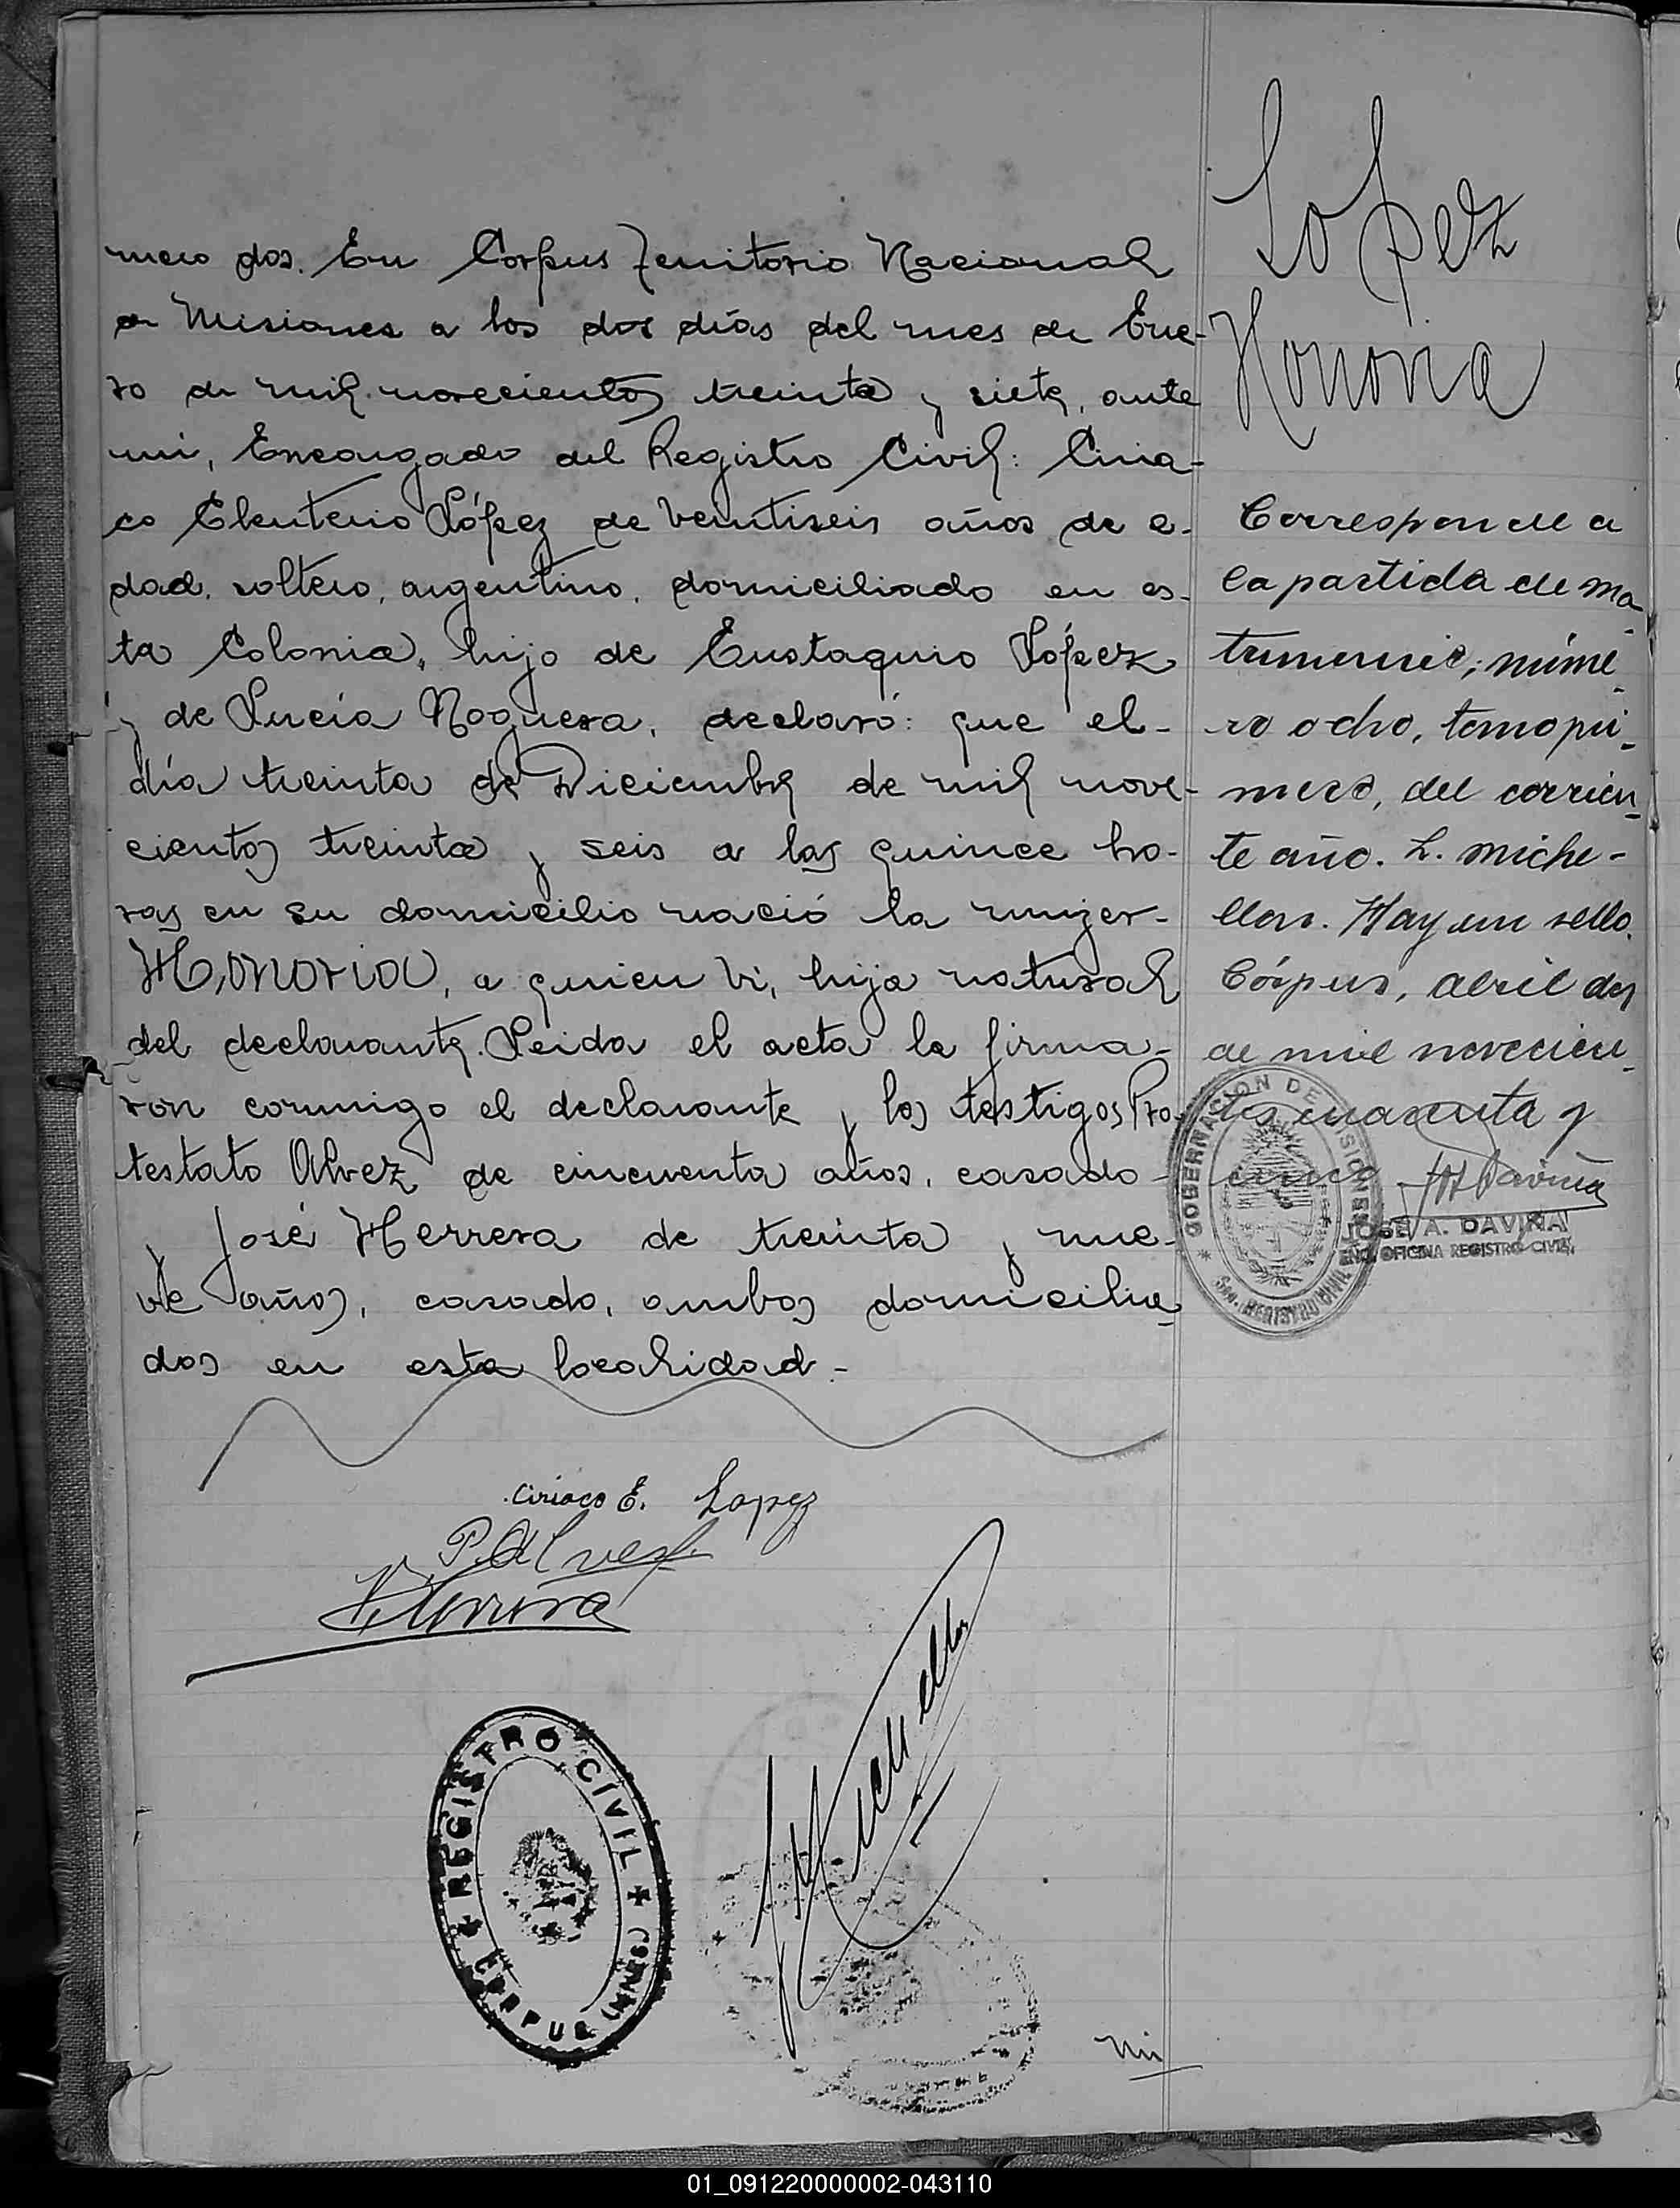 mero dos. En Corpus Territorio Nacional
de Misiones a los dos días del mes de Ene-
ro de mil novecientos treinta y siete, ante
mi, Encargado del Registro Civil: Ciria-
co Eleuterio López de veintiseis años de e-
dad, soltero, argentino, domiciliado en es-
ta Colonia, hijo de Eustaquio López
y de Lucía Noguera, declaró: que el-
día treinta de Diciembre de mil nove-
cientos treinta y seis a las quince ho-
ras en su domicilio nació la mujer-
HONORIA, a quien vi, hija natural
del declarante. Leida el acta la firma-
ron conmigo el declarante y los testigos Pro-
testato Alvez de cincuenta años, casado-
y José Herrera de treinta y nue-
ve años, casado, ambos domicilia-
dos en esta localidad.-
Ciriaco E. Lopez
P. Alvez
Herrera
REGISTRO CIVIL
CORPUS (MNES)
Lopez
Honoria
Corresponde a
la partida de ma-
trimonio, núme-
ro ocho, tomo pri-
mero, del corrien-
te año. L. Miche-
llon. Hay un sello.
Córpus, abril dos
de mil novecien-
tos cuarenta y
cinco
JOSE A. DAVIÑA
ENC. OFICINA REGISTRO CIVIL
GOBERNACION DE MISIONES
01_091220000002-043110